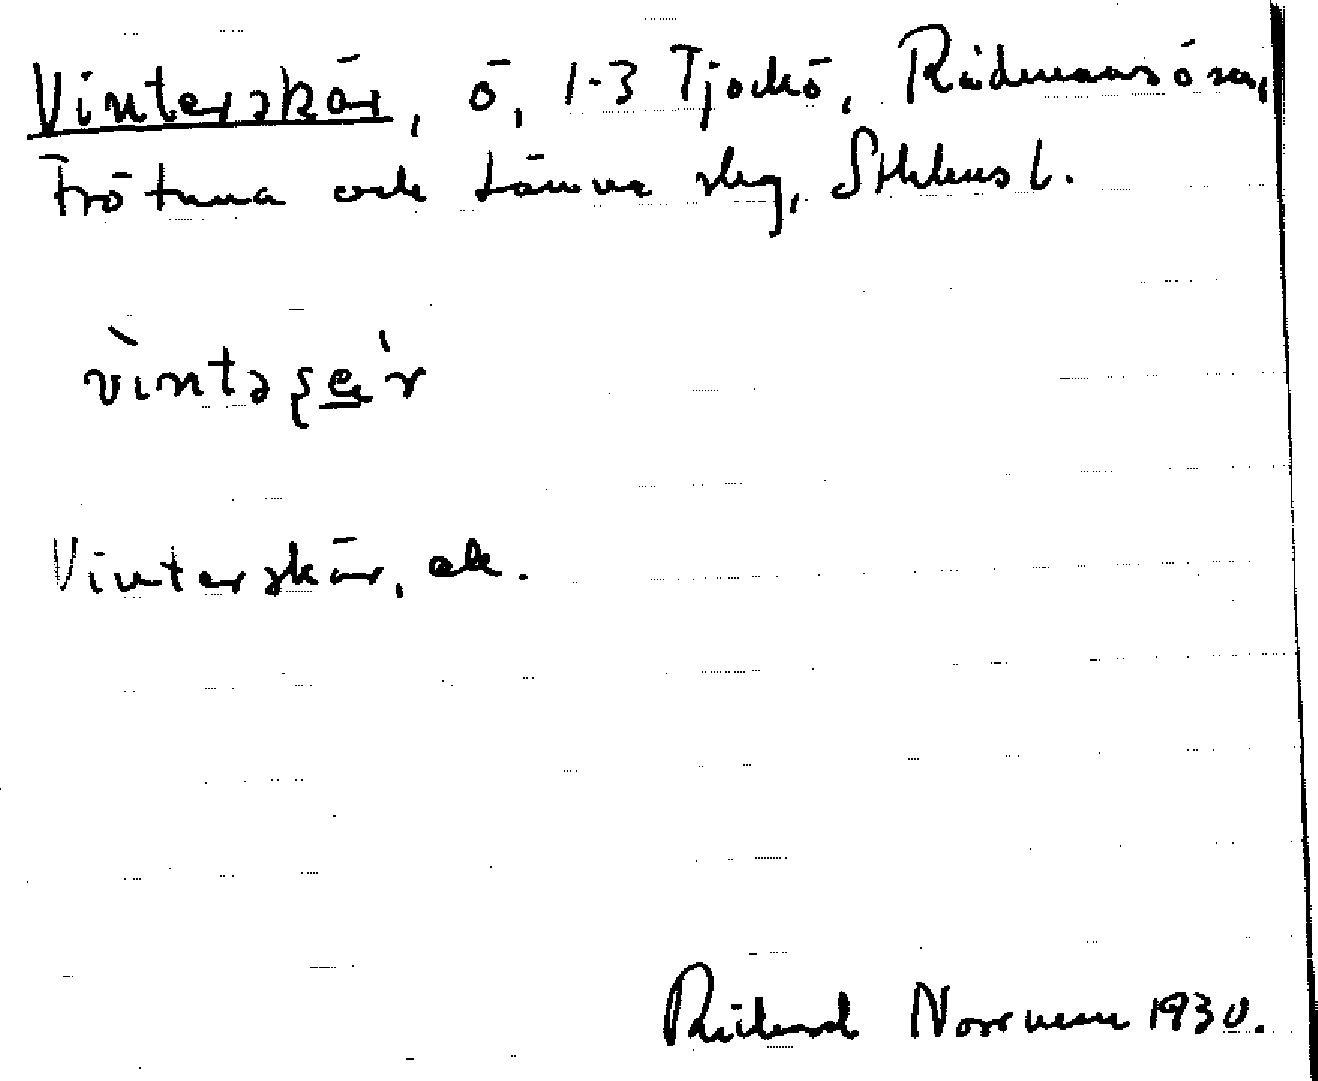 Vinterskär, ö, 1-3 Tjockö, Rådmansö sn,
Frötuna och Länna skg, Sthlms l.
vìntəʂæ̲'r
Vinterskär, ek.
Rickard Norrman 1930.